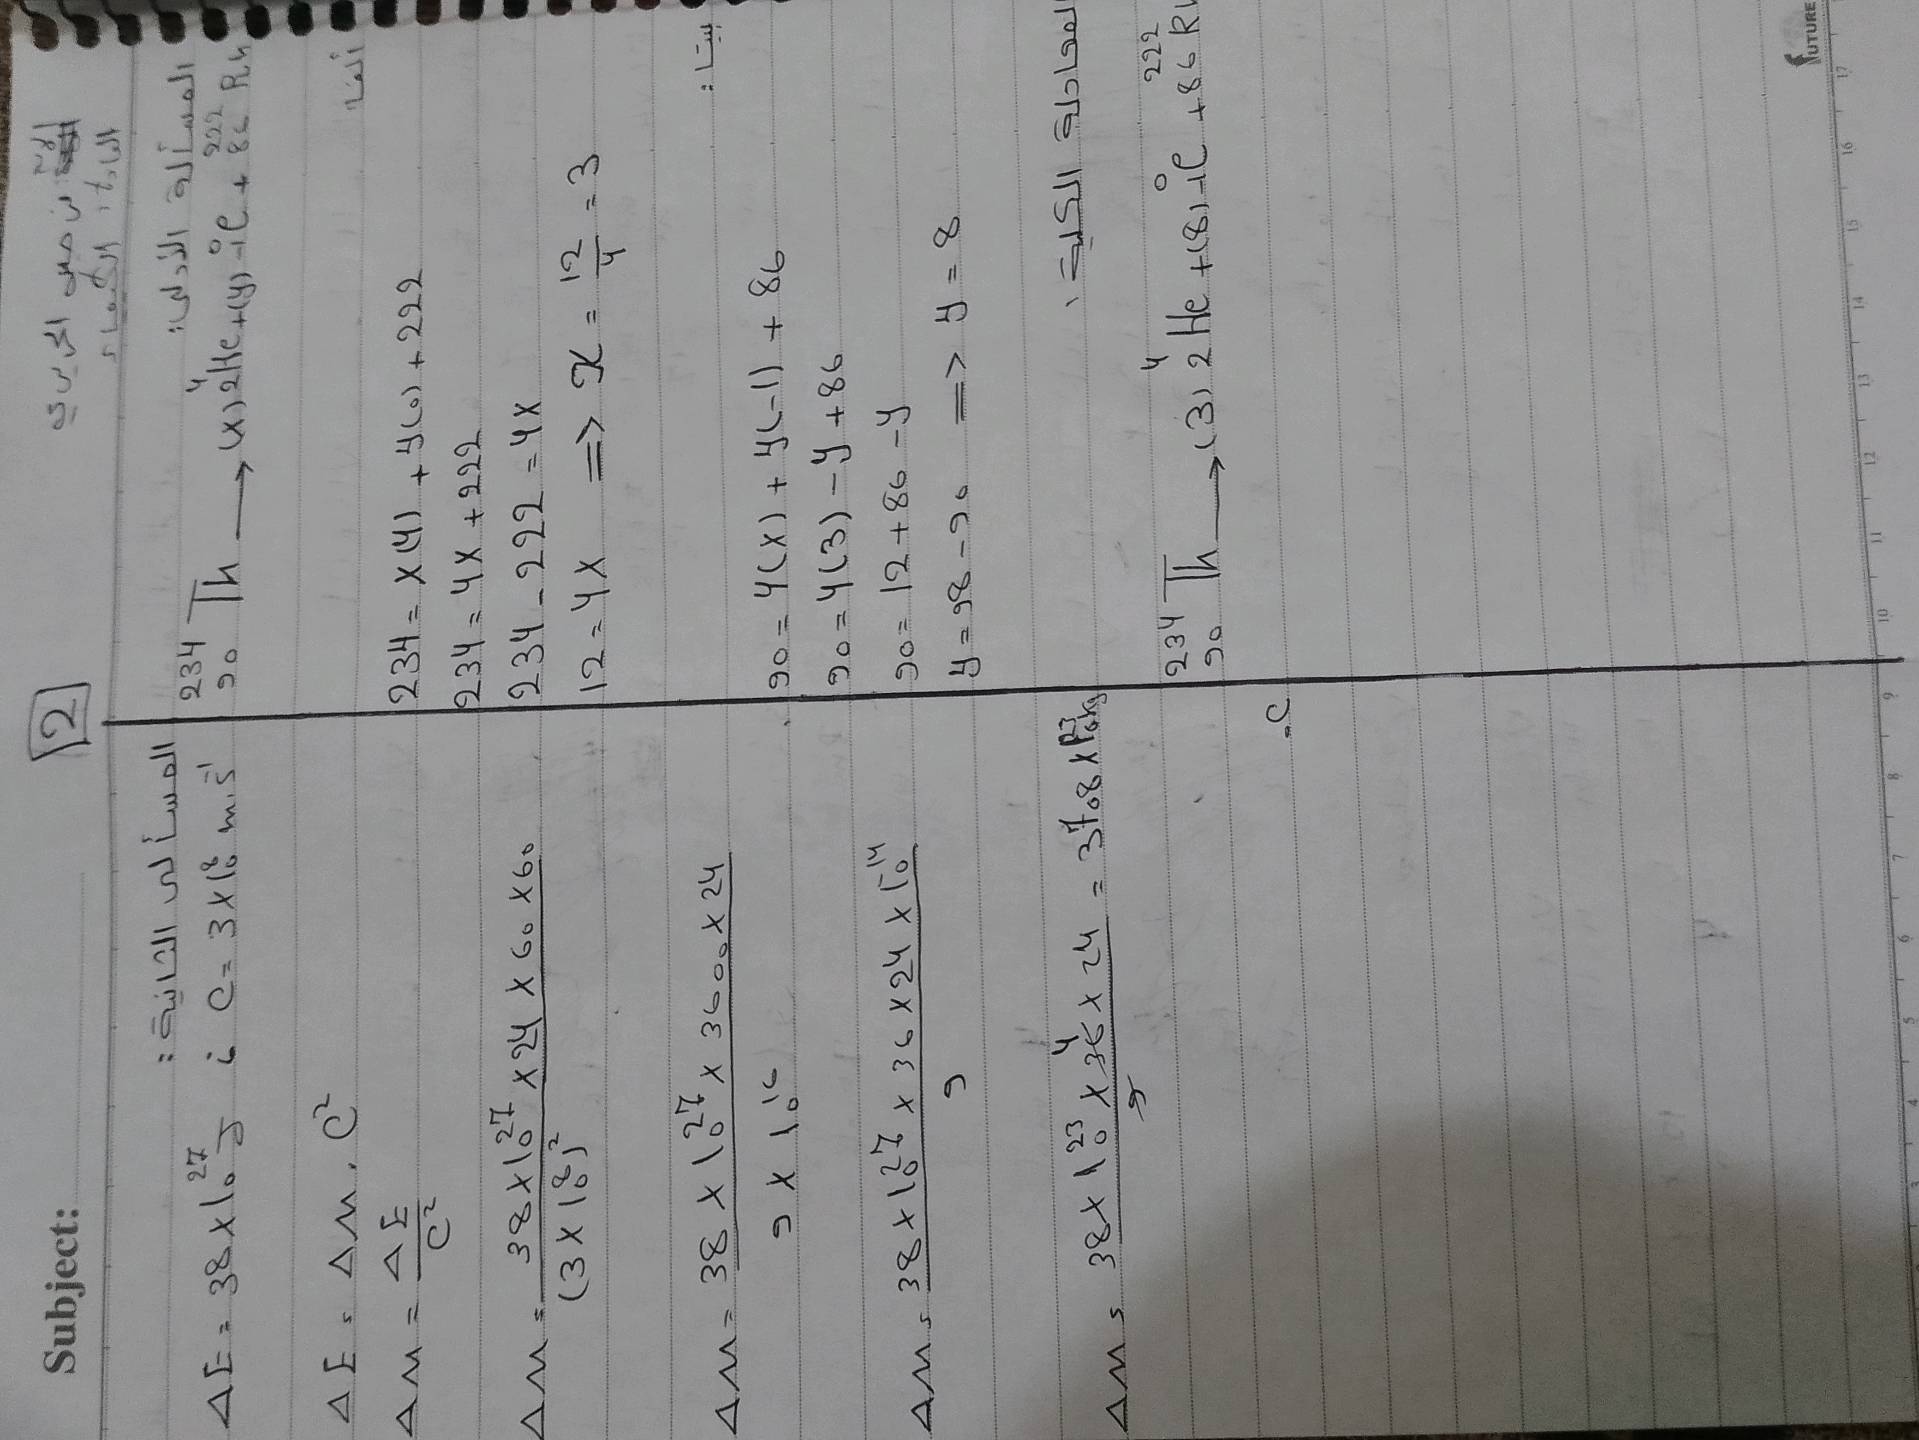 Subject:
2
المادة: الكيمياء
المسألة الأولى:
²³⁴₉₀Th ⟶ (x)⁴₂He + (y)⁰₋₁e + ²²²₈₆Rn
ألفا:
234 = x(4) + y(0) + 222
234 = 4x + 222
234 - 222 = 4x
12 = 4x => x = 12/4 = 3
بيتا:
90 = 4(x) + y(-1) + 86
90 = 4(3) - y + 86
90 = 12 + 86 - y
y = 98 - 90 => y = 8
المعادلة الكلية:
²³⁴₉₀Th ⟶ (3)⁴₂He + (8)⁰₋₁e + ²²²₈₆Rn
المسألى الثانية:
ΔE = 38 × 10²⁷ J ; C = 3 × 10⁸ m.s⁻¹
ΔE = Δm . C²
Δm = ΔE/C²
Δm = 38 × 10²⁷ × 24 × 60 × 60 / (3 × 10⁸)²
Δm = 38 × 10²⁷ × 3600 × 24 / 9 × 10¹⁶
Δm = 38 × 10²⁷ × 36 × 24 × 10⁻¹⁴ / 9
Δm = 38 × 10²³ × 36 4 × 24 / 9 =
FUTURE